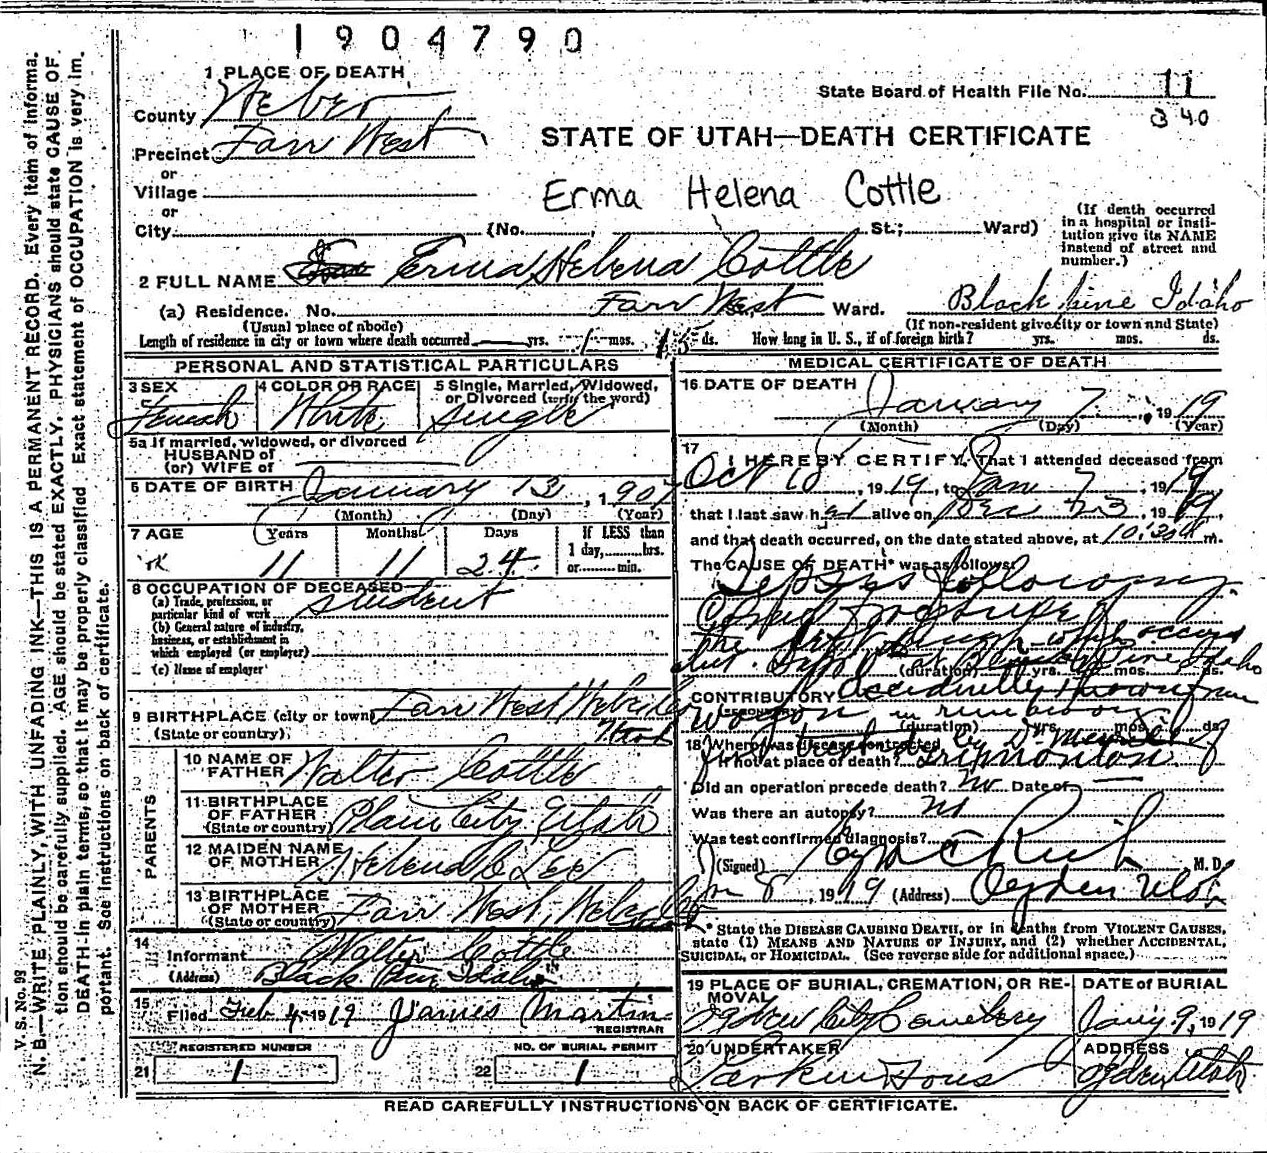 1904790
1 PLACE OF DEATH
County Weber
State Board of Health File No. 11
340
Precinct Farr West
STATE OF UTAH—DEATH CERTIFICATE
or
Village
Erma Helena Cottle
or
City (No. St.; Ward)
(If death occurred in a hospital or insti-
tution give its NAME
instead of street and
number.)
2 FULL NAME Erma Helena Cottle
(a) Residence. No. Farr West Ward. Black Pine Idaho
(Usual place of abode) (If non-resident give city or town and State)
Length of residence in city or town where death occurred yrs. 1 mos. 15 ds. How long in U. S., if of foreign birth? yrs. mos. ds.
PERSONAL AND STATISTICAL PARTICULARS
3 SEX 4 COLOR OR RACE 5 Single, Married, Widowed,
or Divorced (write the word)
Female White single
5a If married, widowed, or divorced
HUSBAND of
(or) WIFE of
6 DATE OF BIRTH January 13, 1907
(Month) (Day) (Year)
7 AGE Years Months Days If LESS than
1 day, hrs.
or min.
11 11 24
8 OCCUPATION OF DECEASED
(a) Trade, profession, or
particular kind of work student
(b) General nature of industry,
business, or establishment in
which employed (or employer)
(c) Name of employer
9 BIRTHPLACE (city or town) Farr West Weber Co
(State or country) Utah
PARENTS
10 NAME OF
FATHER Walter Cottle
11 BIRTHPLACE
OF FATHER Plain City Utah
(State or country)
12 MAIDEN NAME
OF MOTHER Helena C Lee
13 BIRTHPLACE
OF MOTHER Farr West, Weber Co
(State or country)
14
Informant Walter Cottle
(Address) Black Pine Idaho
15
Filed Feb 4 1919 James Martin
REGISTRAR
REGISTERED NUMBER NO. OF BURIAL PERMIT
21 1 22 1
MEDICAL CERTIFICATE OF DEATH
16 DATE OF DEATH
January 7, 1919
(Month) (Day) (Year)
17
I HEREBY CERTIFY, That I attended deceased from
Oct 18, 1919, to Jan 7, 1919
that I last saw her alive on Dec 23, 1919,
and that death occurred, on the date stated above, at 10:30 m.
The CAUSE OF DEATH* was as follows:
Sepsis following
Comp'd fracture of
the thigh which occurred
at Black Pine Idaho
(duration) yrs. mos. ds.
CONTRIBUTORY Accidentally thrown from
(SECONDARY)
wagon in runaway
(duration) yrs. mos. ds.
18 Where was disease contracted
if not at place of death? treated by Dr of Tremonton
Did an operation precede death? no Date of
Was there an autopsy? no
What test confirmed diagnosis?
(Signed) Rich M. D.
Jan 8, 1919 (Address) Ogden Utah
* State the DISEASE CAUSING DEATH, or in deaths from VIOLENT CAUSES,
state (1) MEANS AND NATURE OF INJURY, and (2) whether ACCIDENTAL,
SUICIDAL, or HOMICIDAL. (See reverse side for additional space.)
19 PLACE OF BURIAL, CREMATION, OR RE-
MOVAL DATE of BURIAL
Ogden City Cemetery Jany 9, 1919
20 UNDERTAKER ADDRESS
Larkin & Sons Ogden Utah
READ CAREFULLY INSTRUCTIONS ON BACK OF CERTIFICATE.
V. S. No. 98
N. B.—WRITE PLAINLY, WITH UNFADING INK—THIS IS A PERMANENT RECORD. Every item of informa-
tion should be carefully supplied. AGE should be stated EXACTLY. PHYSICIANS should state CAUSE OF
DEATH in plain terms, so that it may be properly classified. Exact statement of OCCUPATION is very im-
portant. See instructions on back of certificate.